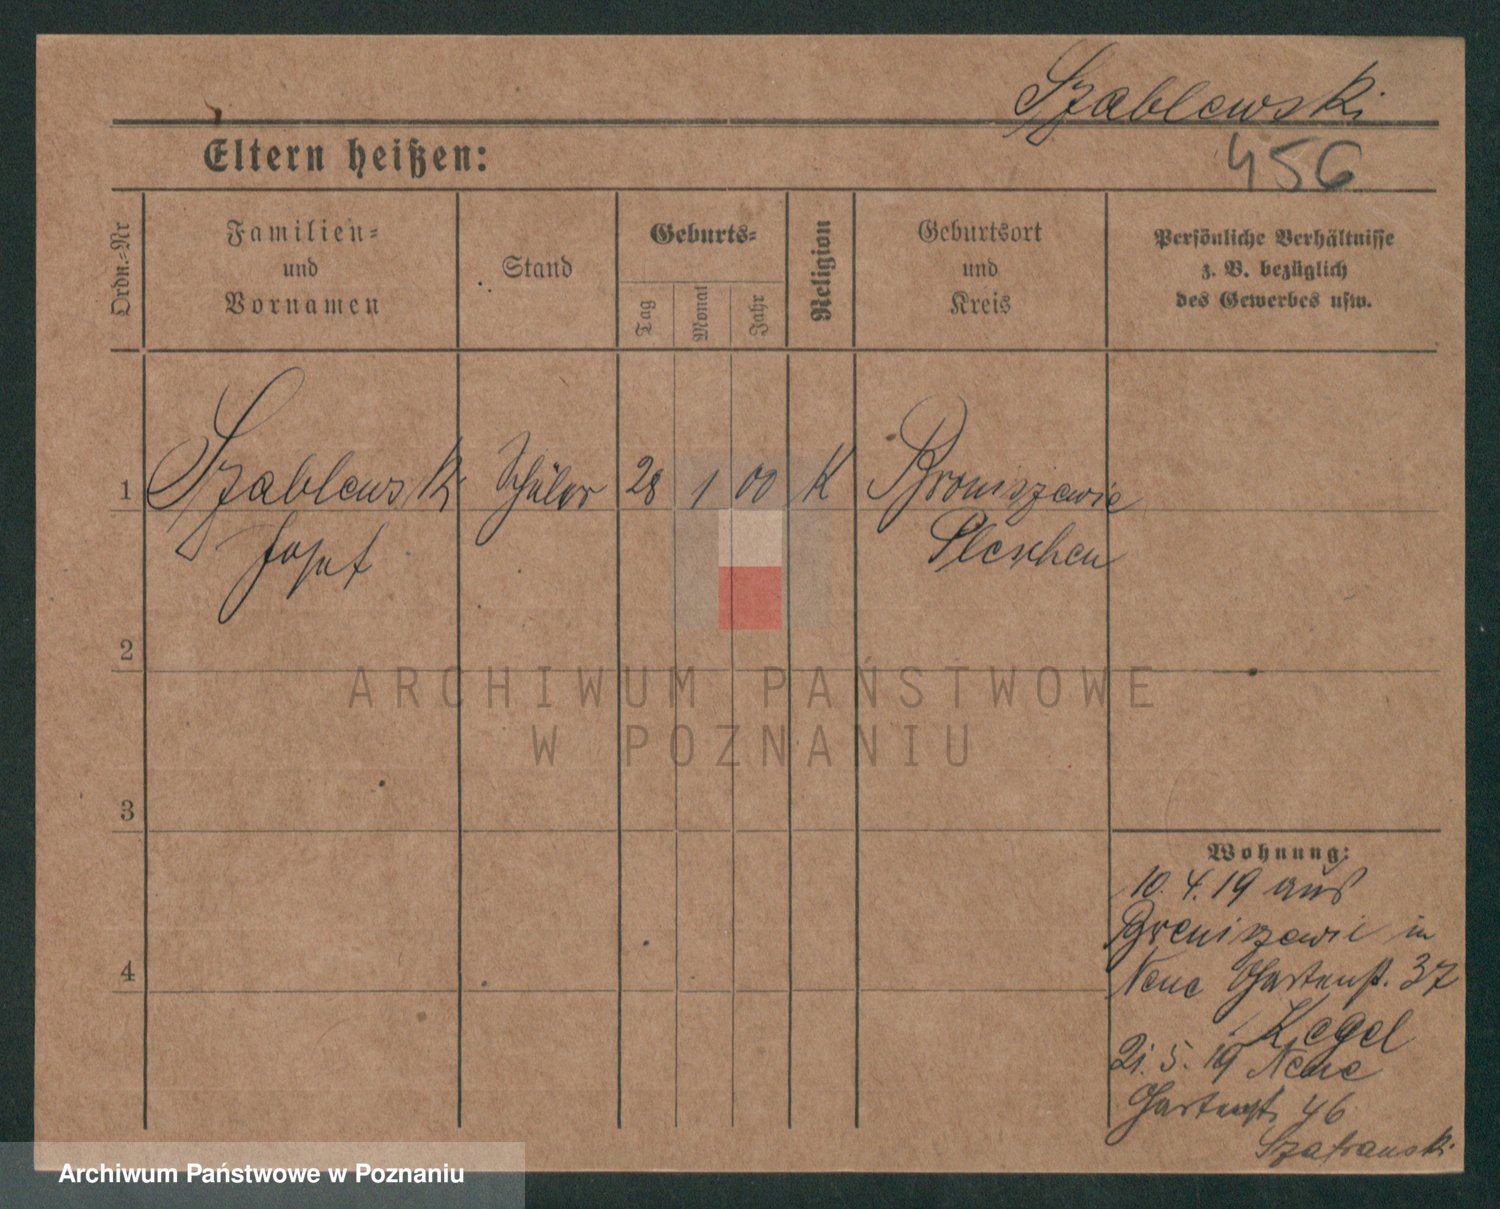 Szablewski
Eltern heißen:
456
Ordn.-Nr
Familien-
und
Vornamen
Stand
Geburts-
Tag
Monat
Jahr
Religion
Geburtsort
und
Kreis
Persönliche Verhältnisse
z. B. bezüglich
des Gewerbes usw.
1 Szablewski Schüler 28 1 00 K Broniszewic
Josef Pleschen
2
3
4
ARCHIWUM PAŃSTWOWE
W POZNANIU
Wohnung:
10. 4. 19 aus
Broniszewic in
Neue Gartenst. 37
Kegel
21. 5. 19 Neue
Gartenst. 46
Szafranski
Archiwum Państwowe w Poznaniu